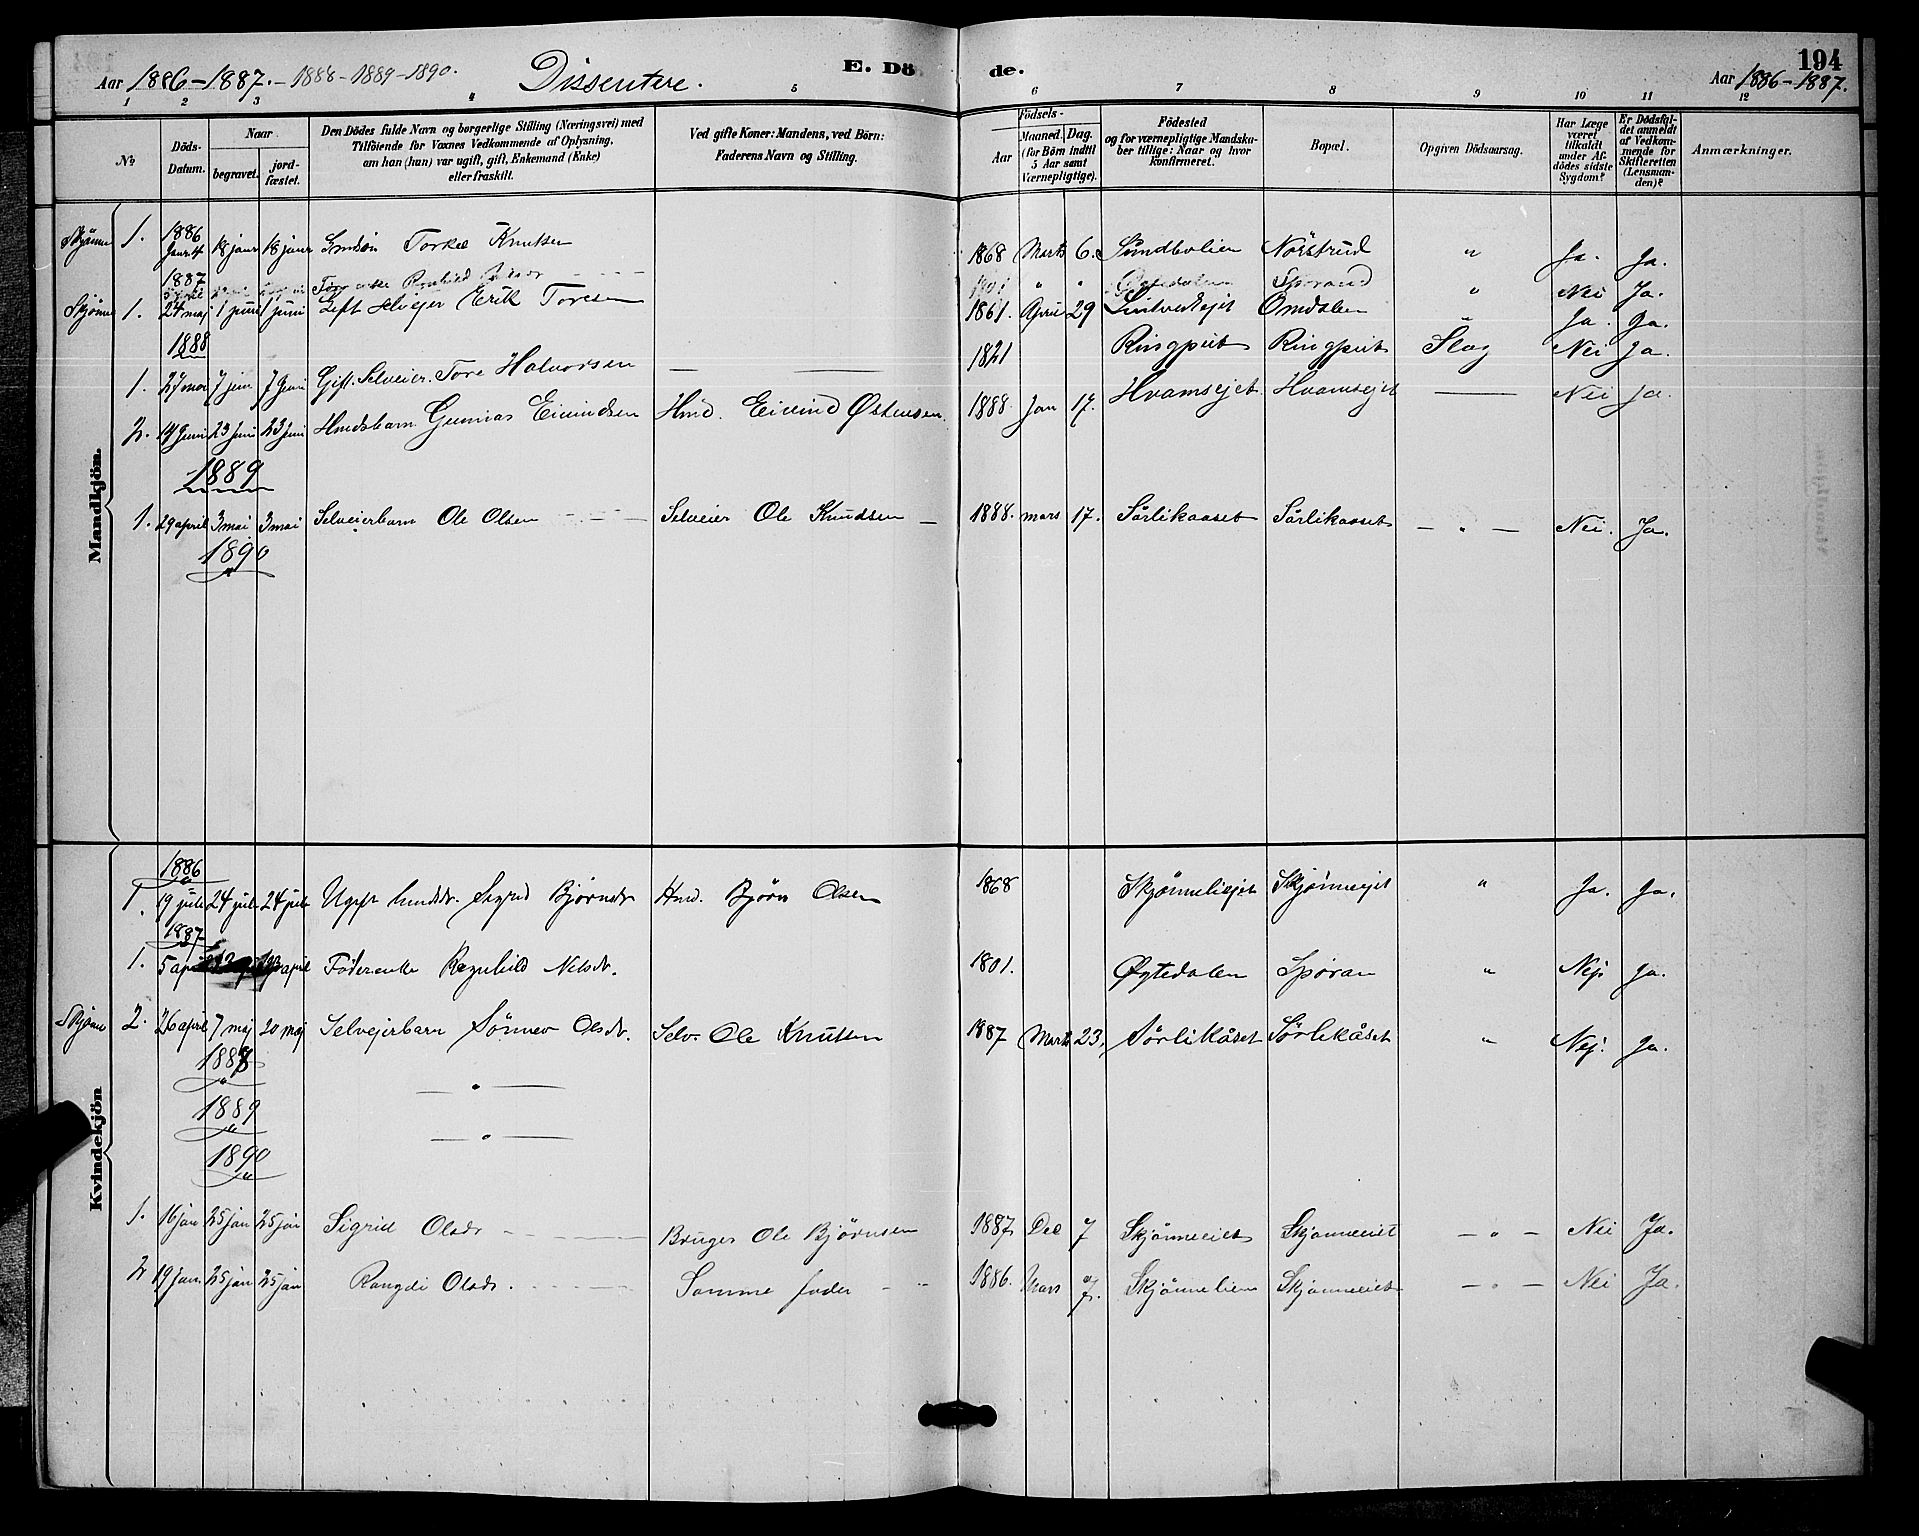 194
Aar 1886-1887. - 1888-1889-1890. Dissentere. E. Dö de. Aar 1886-1887.
1 2 3 4 5 6 7 8 9 10 11 12
No
Döds-Datum.
Naar
begravet. jord-fæstet.
Den Dödes fulde Navn og borgerlige Stilling (Næringsvei) med
Tilföiende for Voxnes Vedkommende af Oplysning,
om han (hun) var ugift, gift, Enkemand (Enke)
eller fraskilt.
Ved gifte Koner: Mandens, ved Börn:
Faderens Navn og Stilling.
Födsels-
Aar
Maaned. Dag.
(for Börn indtil
5 Aar samt
Værnepligtige).
Födested
og for værnepligtige Mandska-
ber tillige: Naar og hvor
konfirmeret.
Bopæl.
Opgiven Dödsaarsag.
Har Læge
været
tilkaldt
under Af-
dödes sidste
Sygdom?
Er Dödsfal-
det anmeldt
af Vedkom-
mende for
Skifteretten
(Lensman-
den)?
Anmærkninger.
Mandkjön.
1886
Skjønne 1. 18 janr 18 janr Torkel Knutsen 1868 Marts 6. Sundbolien Nørstrud " Ja. Ja.
1887
Ragnhild 1801 " " Øgtedalen Sporand " Nei Ja.
Skjønne 1. 24 maj 1 juni 1 juni Gift Selvejer Erik Toresen 1861. April 29 Omdalen " Ja. Ja.
1888
1. 27 mai 7 juni 7 juni Gift. Selveier. Tore Halvorsen — — 1821 Ringpeit Ringpeit Slag Nei Ja.
2. 14 juni 23 juni 23 juni Hmdsbarn Gunnar Eivindsen Hmd. Eivind Østensen 1888. Jan 17. Hvamsejet Hvamsejet — Nei Ja.
1889
1. 29 april 3 mai 3 mai Selveierbarn Ole Olsen - - - Selveier Ole Knudsen — 1888. mars 17. Sørlikaaset Sørlikaaset — " — Nei. Ja.
1890
"
Kvindekjön
1886
1. 19 juli 24 juli 24 juli Ugift hmdsdr. Sigrid Bjørnsdr Hmd. Bjørn Olsen 1868 Skjønneliejet Skjønneejet " Ja. Ja.
1887
1. 5 april april Føderenke Ragnhild Nilsdr. 1801. Øgtedalen Sporan " Nej. Ja.
Skjønne 2. 26 april 7 maj 20 maj Selvejerbarn Sønnev Olsdr. Selv. Ole Knutsen 1887 Marts 23, Sørlikåset Sørlikåset " Nej. Ja.
1888
— " —
1889
— " —
1890
1. 16 jan 25 jan 25 jan Sigrid Olsdr - - - Bruger Ole Bjørnsen 1887. Dec 7 Skjønneeiet Skjønneeiet — " — Nei Ja.
2 19 jan 25 jan 25 jan Rangdi Olsdr. - - - Samme fader - - 1886. Mars 7. Skjønnelien Skjønneeiet — " — Nei Ja.